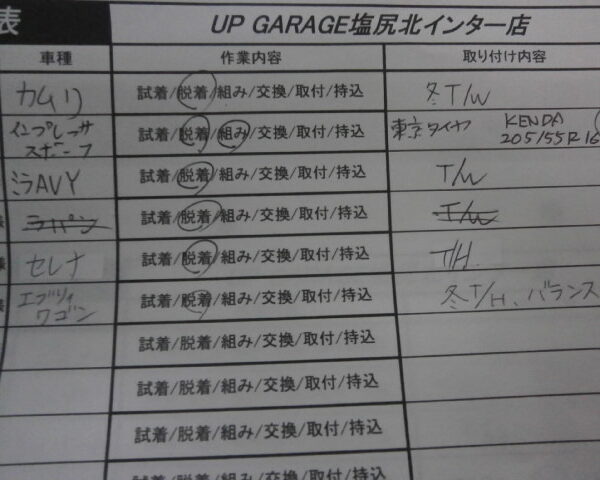 表
UP GARAGE塩尻北インター店
車種 作業内容 取り付け内容
カムリ 試着/脱着/組み/交換/取付/持込 冬T/W
インプレッサ
スポーツ 試着/脱着/組み/交換/取付/持込 東京タイヤ KENDA
205/55R16
ミラAVY 試着/脱着/組み/交換/取付/持込 T/W
ラパン 試着/脱着/組み/交換/取付/持込 T/W
セレナ 試着/脱着/組み/交換/取付/持込 T/H.
エブリィ
ワゴン 試着/脱着/組み/交換/取付/持込 冬T/H、バランス
試着/脱着/組み/交換/取付/持込
試着/脱着/組み/交換/取付/持込
試着/脱着/組み/交換/取付/持込
試着/脱着/組み/交換/取付/持込